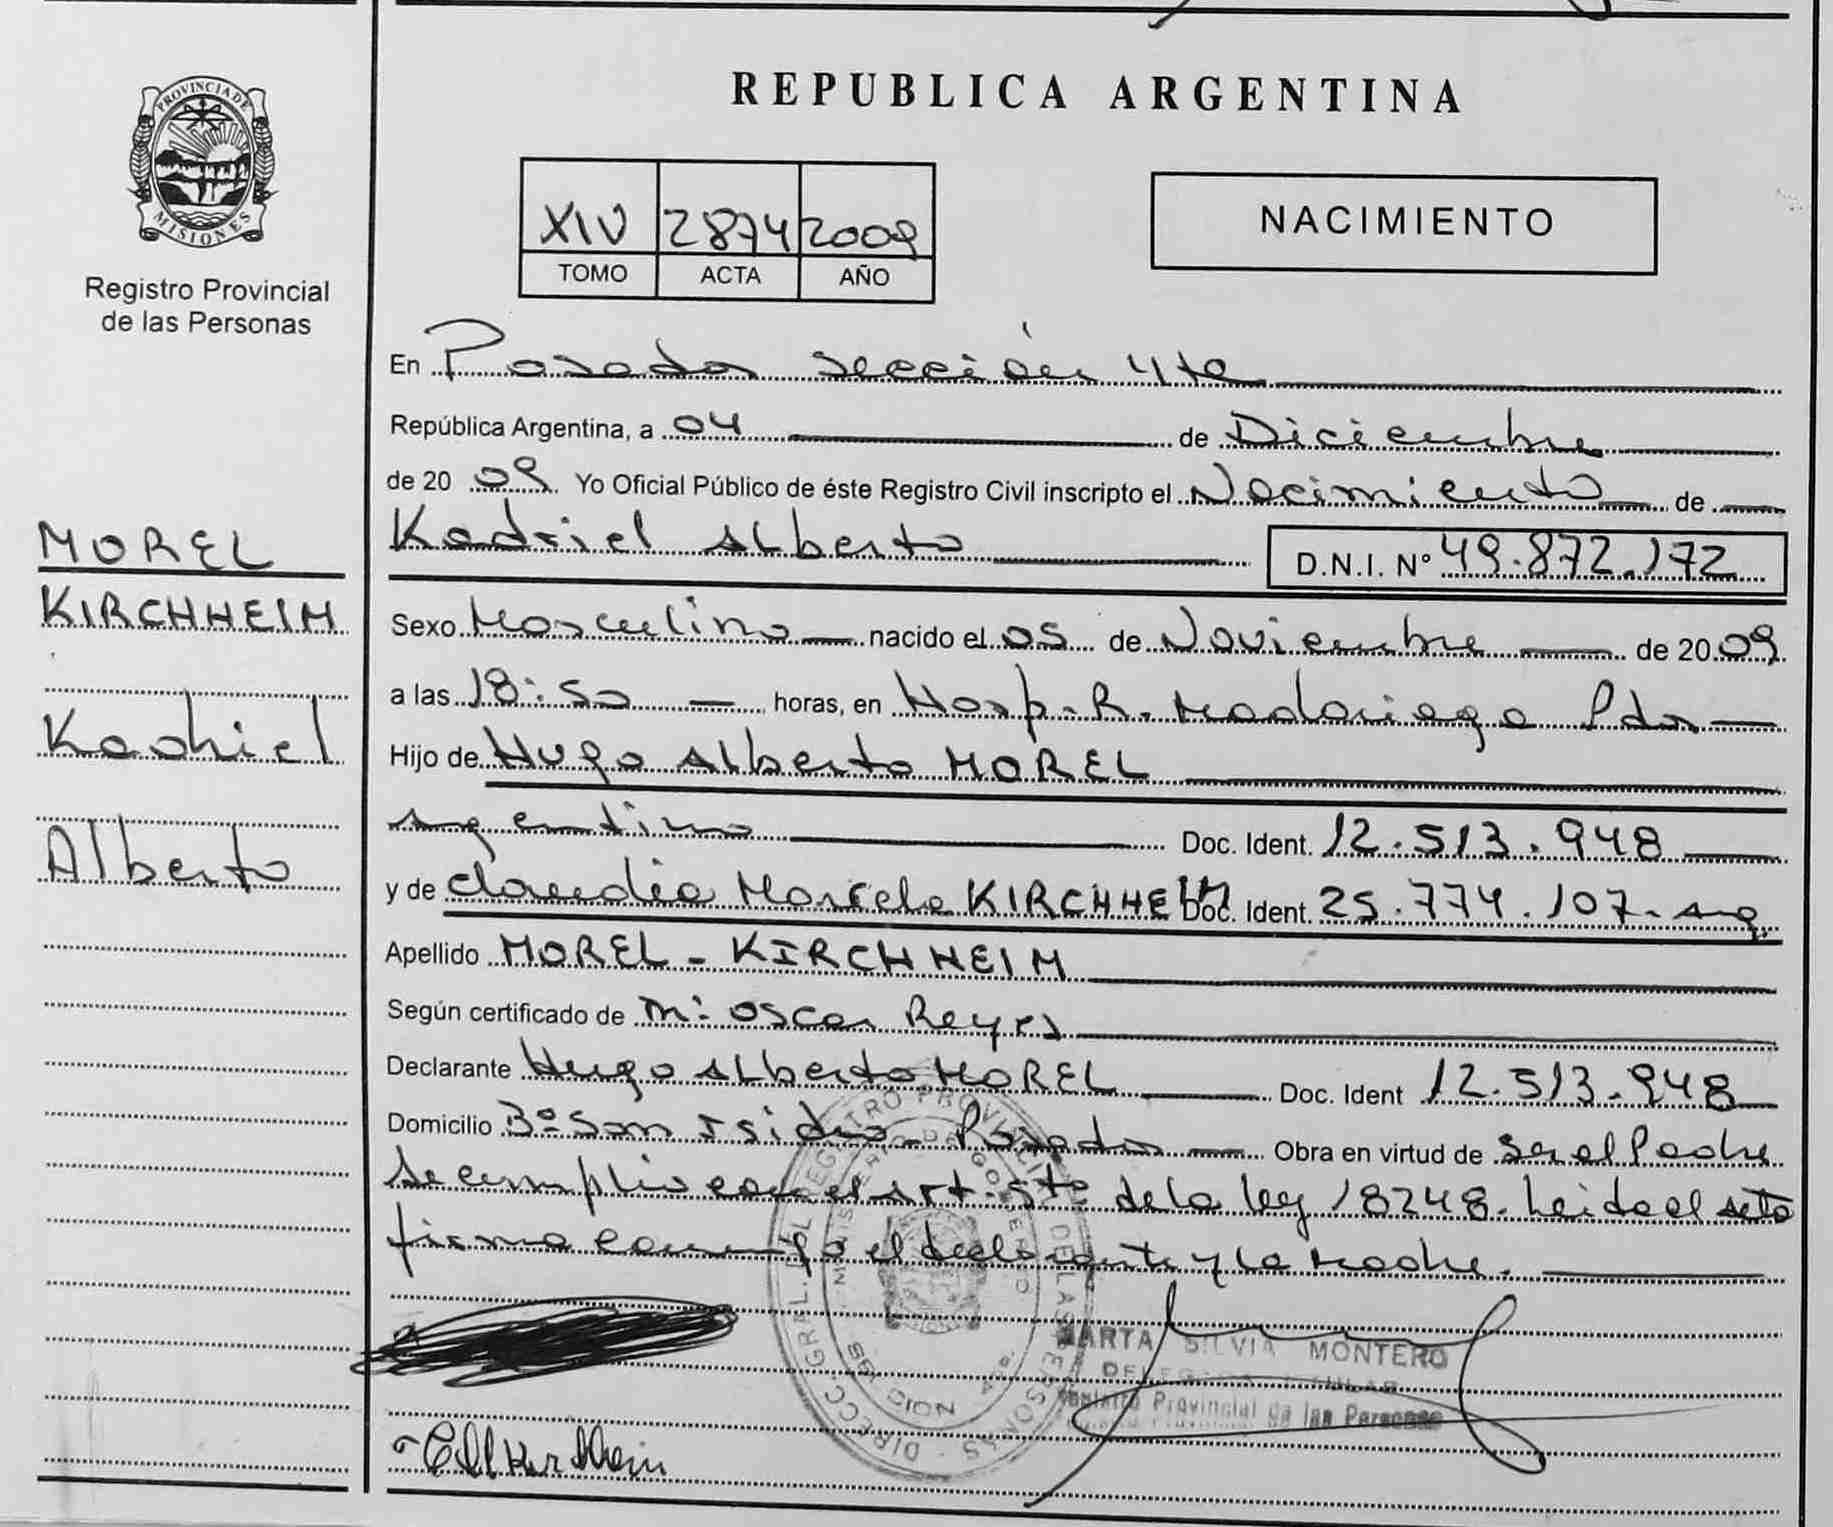 PROVINCIA DE
MISIONES
Registro Provincial
de las Personas
MOREL
KIRCHHEIM
Kadriel
Alberto
REPUBLICA ARGENTINA
XIV 2874 2009
TOMO ACTA AÑO
NACIMIENTO
En Posadas sección 4ta
República Argentina, a 04 de Diciembre
de 20 09 Yo Oficial Público de éste Registro Civil inscripto el Nacimiento de
Kadriel Alberto D.N.I. Nº 49.872.172
Sexo Masculino nacido el 05 de Noviembre de 20 09
a las 18:50 horas, en Hosp. R. Madariaga Pdas
Hijo de Hugo Alberto MOREL
argentino Doc. Ident. 12.513.948
y de Claudia Marcela KIRCHHEIM Doc. Ident. 25.774.107- arg.
Apellido MOREL - KIRCHHEIM
Según certificado de Oscar Reyes
Declarante Hugo Alberto MOREL Doc. Ident 12.513.948
Domicilio Bº San Isidro - Posadas Obra en virtud de ser el Padre
Se cumplio con el art. 5to de la ley 18248. Leida el acta
firma conmigo el declarante y la madre.
MARTA SILVIA MONTERO
DELEGADA TITULAR
Registro Provincial de las Personas
DIRECC. GRAL. DEL REGISTRO PROVINCIAL DE LAS PERSONAS
MINISTERIO DE GOBIERNO